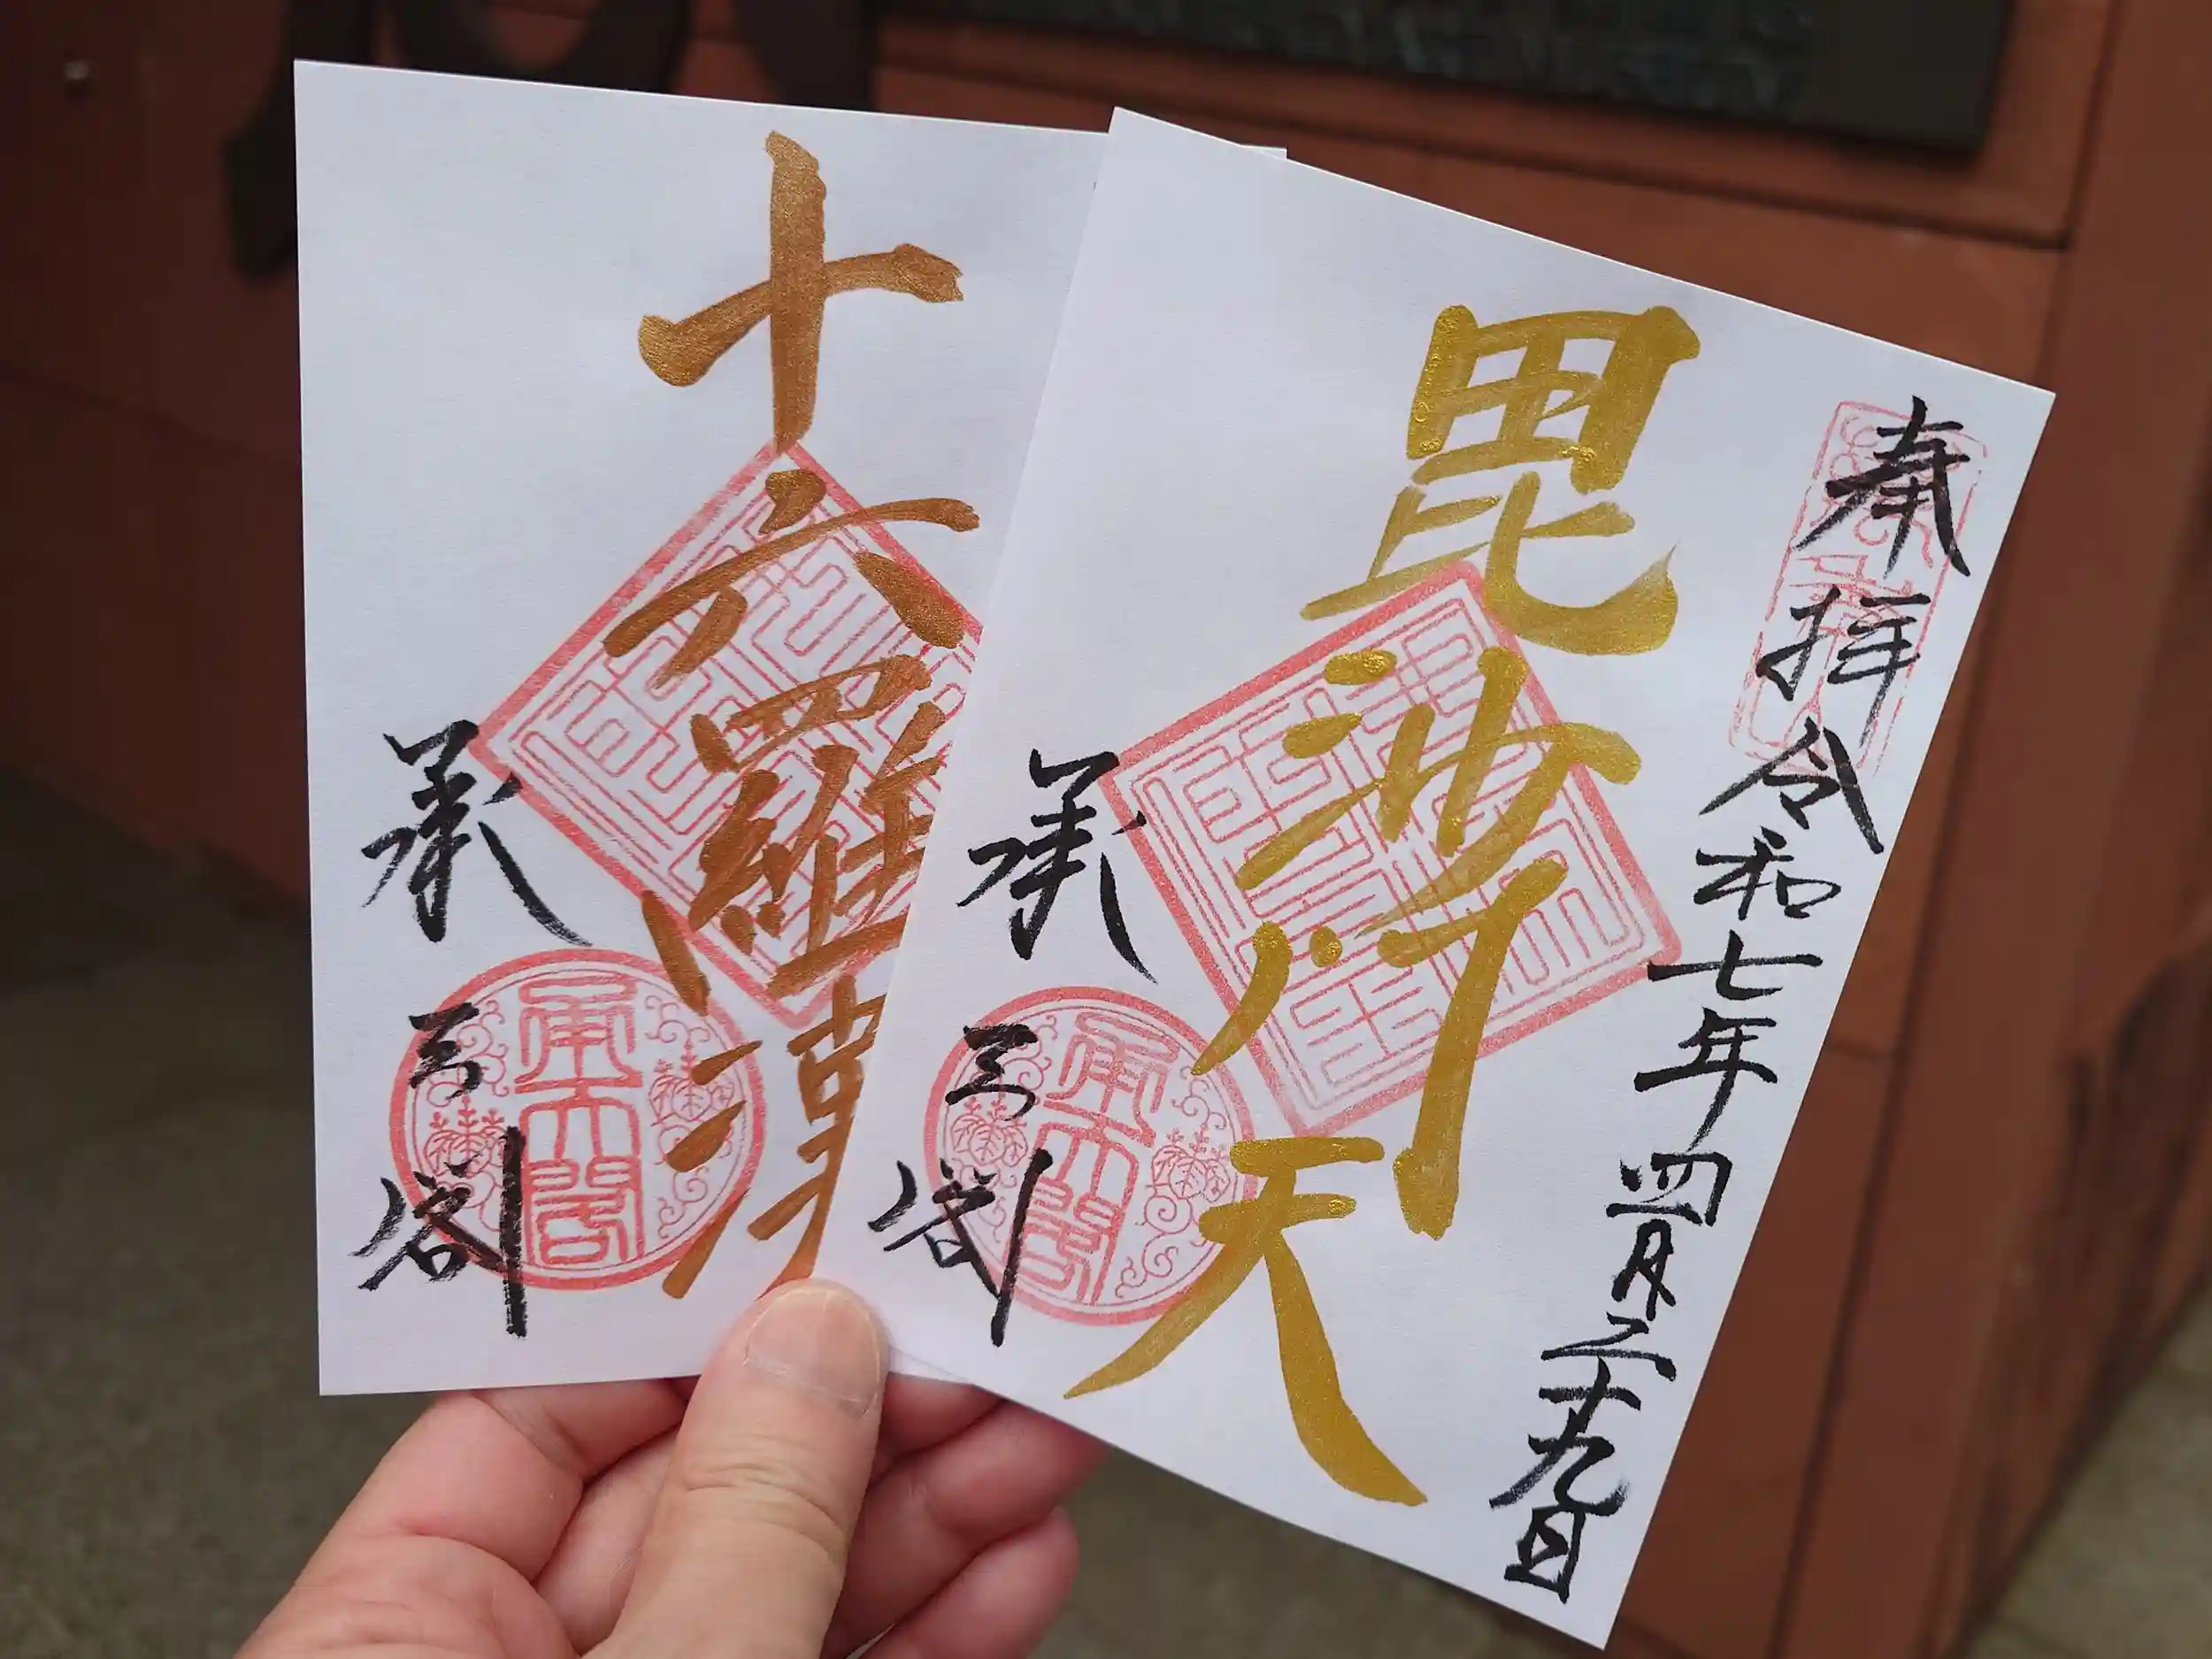 十六羅漢
承天閣
承天閣
奉拝 令和七年四月二十九日
毘沙門天
承天閣
承天閣